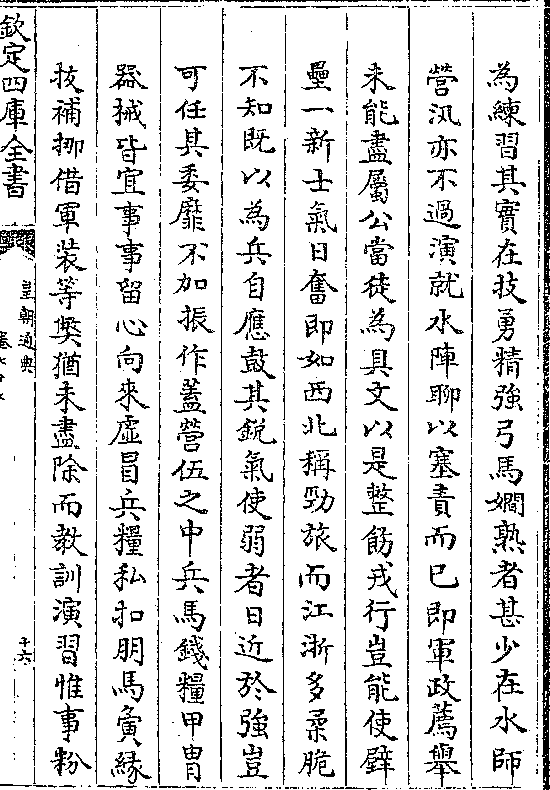 為練習其實在技勇精強弓馬嫺熟者甚少在水師
營汛亦不過演就水陣聊以塞責而已即軍政薦舉
未能盡屬公當徒為具文以是整飭戎行豈能使壁
壘一新士氣日奮即如西北稱勁旅而江浙多柔脆
不知既以為兵自應鼓其銳氣使弱者日近於強豈
可任其委靡不加振作蓋營伍之中兵馬錢糧甲胄
器械皆宜事事留心向來虛冒兵糧私扣朋馬夤緣
拔補挪借軍裝等獘猶未盡除而教訓演習惟事粉
欽定四庫全書
皇朝通典
十六